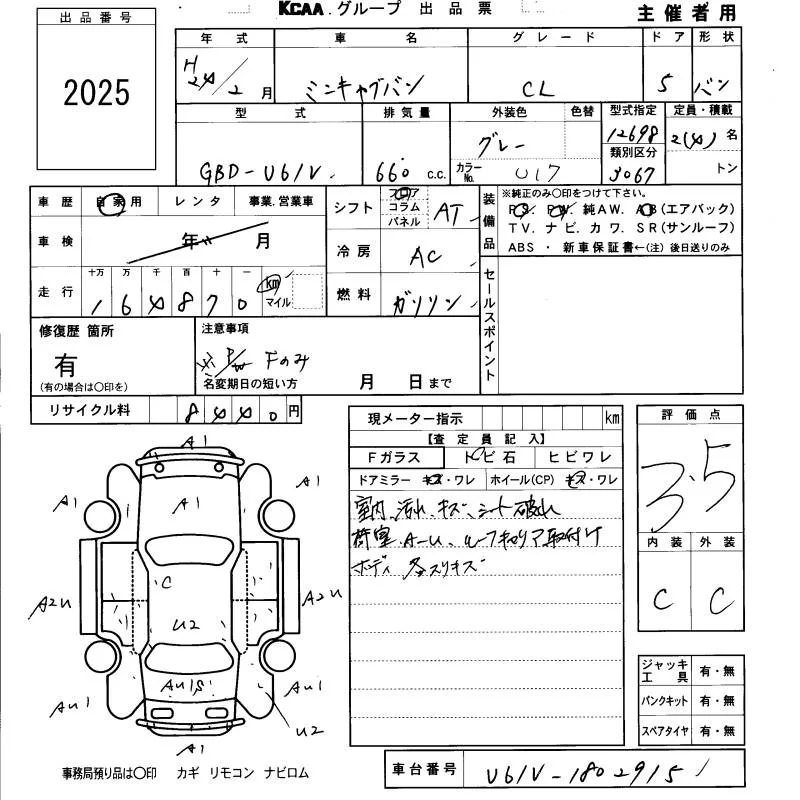 KCAA.グループ 出品票
主催者用
出品番号
2025
年式 車名 グレード ドア 形状
H24/2月 ミニキャブバン CL 5 バン
型式 排気量 外装色 色替 型式指定 定員・積載
GBD-U61V 660 c.c. グレー 12698 2(4)名
カラーNo. U17 類別区分 3067 トン
車歴 自家用 レンタ 事業.営業車
シフト フロア コラム パネル AT
装備品
※純正のみ○印をつけて下さい。
PS. PW. 純AW. AB(エアバック)
TV. ナビ. カワ. SR(サンルーフ)
ABS ・ 新車保証書←(注)後日送りのみ
車検 年 月
冷房 AC
セールスポイント
走行 十万 万 千 百 十 一
164870 km マイル
燃料 ガソリン
修復歴 箇所
有
(有の場合は○印を)
注意事項
※P/W Fのみ
名変期日の短い方 月 日まで
リサイクル料 8440円
現メーター指示 km
【査定員記入】
Fガラス トビ石 ヒビワレ
ドアミラー キズ・ワレ ホイール(CP) キズ・ワレ
室内 汚れ、キズ、シート破れ
荷室 A-U、ルーフキャリア取付け
ボディ 各スリキズ
評価点
3.5
内装 外装
C C
A1
A1 A1 A1
C
A2U A2U
U2
AU1S
AU1 AU1
U2
A1
ジャッキ工具 有・無
パンクキット 有・無
スペアタイヤ 有・無
事務局預り品は○印 カギ リモコン ナビロム
車台番号 U61V-1802915